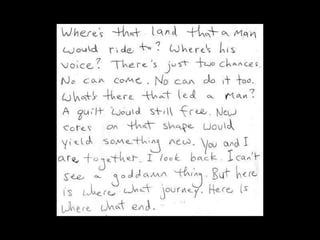 Where's that land that a man
would ride to? Where's his
voice? There's just two chances.
No can come. No can do it too.
What's there that led a man?
A quilt would still free. New
cores on that shape would
yield something new. You and I
are together. I look back. I can't
see a goddamn thing. But here
is where what journey. Here is
where what end.